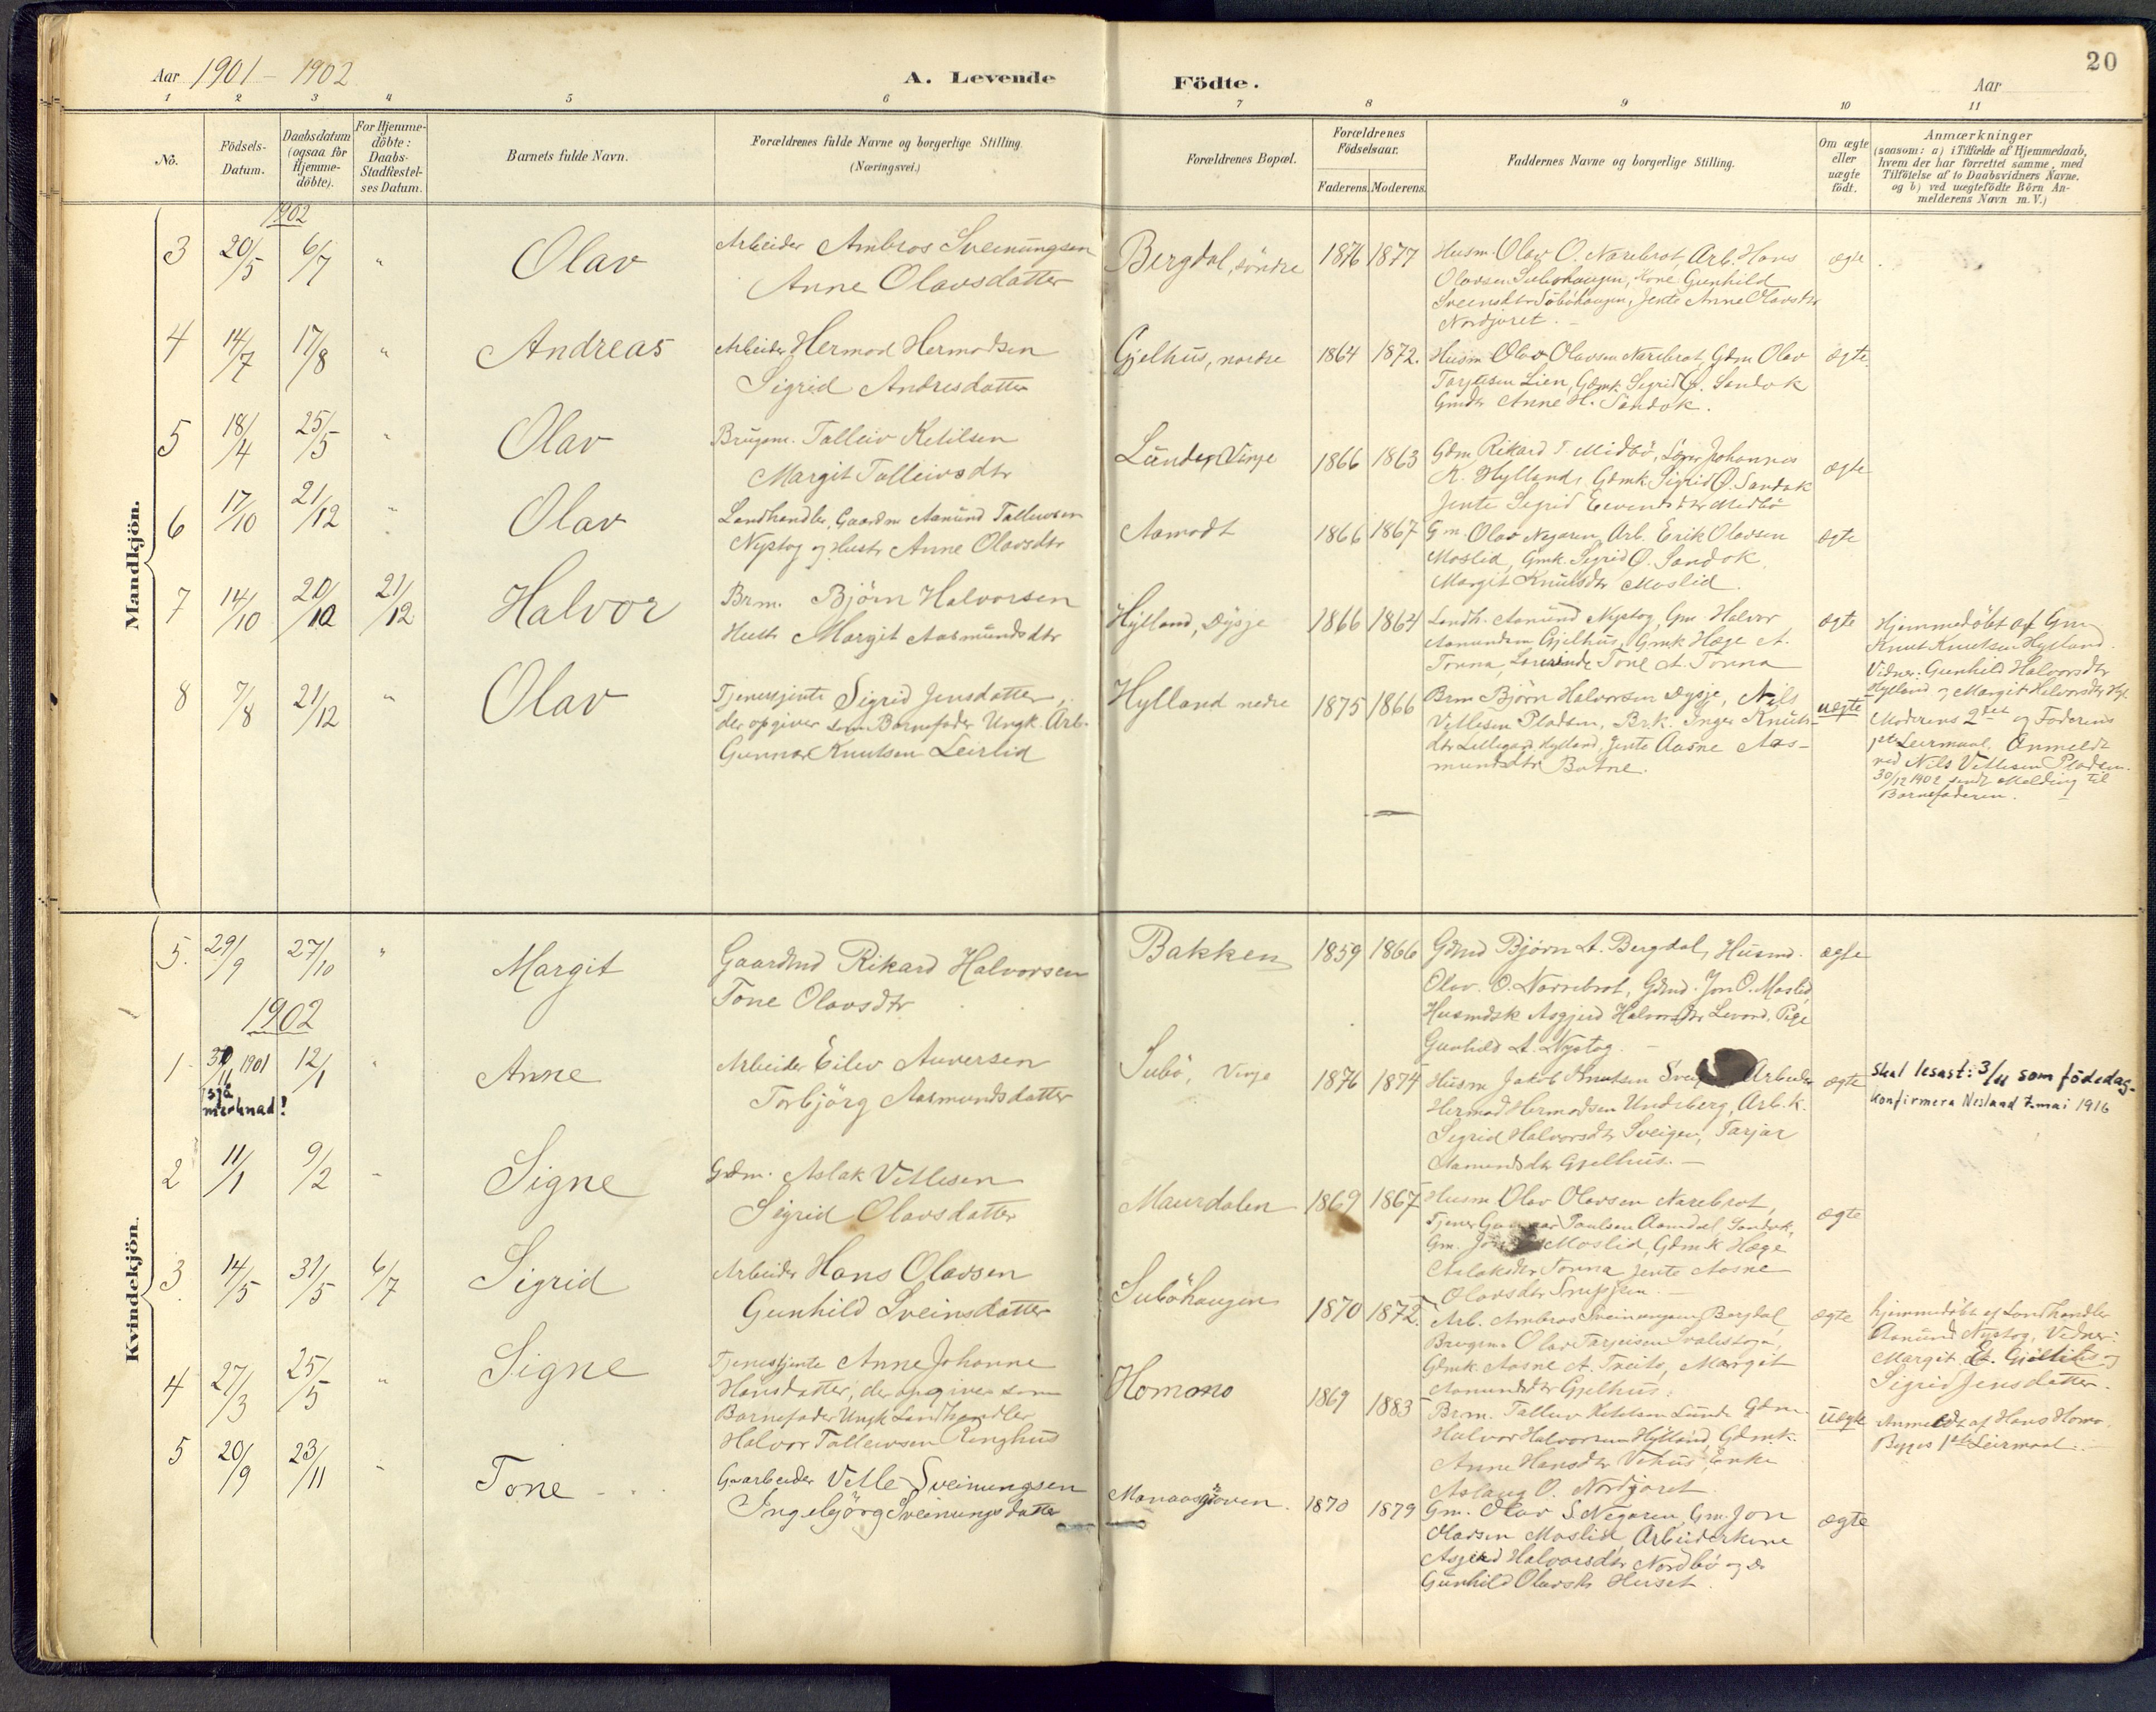 Aar 1901 - 1902
A. Levende
Födte.
Aar
20
1 2 3 4 5 6 7 8 9 10 11
No.
Födsels-
Datum.
Daabsdatum
(ogsaa for
Hjemme-
döbte).
For Hjemme-
döbte:
Daabs-
Stadfæstel-
ses Datum.
Barnets fulde Navn.
Forældrenes fulde Navne og borgerlige Stilling.
(Næringsvei.)
Forældrenes Bopæl.
Forældrenes
Födselsaar.
Faderens. Moderens.
Faddernes Navne og borgerlige Stilling.
Om ægte
eller
uægte
födt.
Anmærkninger
(saasom: a) i Tilfælde af Hjemmedaab,
hvem der har forrettet samme, med
Tilföielse af to Daabsvidners Navne,
og b) ved uægtefödte Börn An-
melderens Navn m. V.)
Mandkjön.
1902
3 20/5 6/7 " Olav
Arbeider Ambros Sveinungsen
Anne Olavsdatter
Bergdal, söndre 1876 1877
Husm. Olav O. Narebrot, Arb. Hans
Olavsen Suböhaugen, Kone Gunhild
Sveinsdtr Suböhaugen, Jente Anne Olavsdtr
Nordjoret.
ægte
4 14/7 17/8 " Andreas
Arbeider Hermod Hermodsen
Sigrid Andresdatter
Gjelhus, nordre 1864 1872.
Husm Olav Olavsen Narebrot, Gdm Olav
Tarjeisen Lien, Gdmk. Sigrid Ø. Sandok
Gmdtr Anne H. Sandok.
ægte.
5 18/4 25/5 " Olav
Brugsm. Talleiv Ketilsen
Margit Talleivsdtr
Lunden, Vinje 1866 1863
Gdm Rikard T. Midbö, Lærer Johannes
K. Hylland, Gdmk. Sigrid Ø. Sandok
Jente Sigrid Eivindsdtr Midbö
ægte
6 17/10 21/12 " Olav
Landhandler, Gaardm Aamund Talleivsen
Nystog og Hustr Anne Olavsdtr
Aamodt 1866 1867
Gm. Olav Negaren, Arb. Erik Olavsen
Moslid, Gmk. Sigrid Ø. Sandok,
Margit Knutsdtr Moslid.
ægte
7 14/10 20/10 21/12 Halvor
Brm. Björn Halvorsen
Hustr Margit Aasmundsdtr
Hylland, Dysje 1866 1864
Landh. Aamund Nystog, Gm. Halvor
Aamundsen Gjelhus, Gmk Hæge A.
Tonna, Lærerinde Tone A. Tonna
ægte
Hjemmedöbt af Gm
Knut Knutsen Hylland.
Vidner: Gunhild Halvorsdtr
Hylland og Margit Halvorsdtr Hyl.
8 7/8 21/12 " Olav
Tjenestjente Sigrid Jensdatter,
der opgiver som Barnefader Ungk. Arb.
Gunnar Knutsen Leirlid
Hylland nedre 1875 1866
Brm Björn Halvorsen Dysje, Nils
Vetlesen Pladsen, Br.k. Inger Knuts-
dtr Lillegaard Hylland, Jente Aasne Aas-
mundsdtr Botne.
uægte
Moderens 2det og Faderens
1ste Leiermaal. Anmeldt
ved Nils Vetlesen Pladsen.
30/12 1902 sendt Melding til
Barnefaderen.
Kvindekjön.
5. 29/9 27/10 " Margit
Gaardmd Rikard Halvorsen
Tone Olavsdtr
Bakken 1859 1866
Gdmd Björn A. Bergdal, Husmd.
Olav O. Norrebrot, Gdmd. Jon O. Moslid,
Husmdsk Asgjerd Halvorsdtr Levord, Pige
Gunhild A. Nystog.
ægte
1902
1 30/11 1901 12/1 " Anne
sjå
merknad!
Arbeider Eilev Auversen
Torbjörg Aasmundsdatter
Subö, Vinje 1876 1874
Husm Jakob Knutsen Arbeider
Hermod Hermodsen Undeberg, Arb.k.
Sigrid Halvorsdtr Sveigen, Tarjar
Aamundsdtr Gjelhus.
ægte
Skal lesast: 3/11 som födedag-
Konfirmera Nesland 7.mai 1916
2 11/1 9/2 - Signe
Gdm. Aslak Vetlesen
Sigrid Olavsdatter
Maurdalen 1869 1867
Husm Olav Olavsen Narebrot,
Tjener Gunnar Paulsen Aamdal, Sandok,
Gm. Jon Moslid, Gdmk Hæge
Aslaksdtr Tonna, Jente Aasne
Olavsdtr
ægte
3. 14/5 31/5 6/7 Sigrid
Arbeider Hans Olavsen
Gunhild Sveinsdatter
Suböhaugen 1870 1872.
Arb. Ambros Sveinungsen Bergdal,
Brugsm. Olav Tarjeisen
Gdmk. Aasne A. Margit
Aamundsdtr Gjelhus.
ægte
hjemmedöbt af Landhandler
Aamund Nystog, Vidner:
Margit A. Gjellhus og
Sigrid Jensdatter.
4 27/3 25/5 " Signe
Tjenestjente Anne Johanne
Hansdatter, der opgiver som
Barnefader Ungk Landhandler
Halvor Talleivsen Ringhus
Homano 1869 1883
Brm. Talleiv Ketilsen Lunde Gdm.
Halvor Halvorsen Hylland, Gdmk.
Anne Hansdtr Vehus, Enke
Aslaug O. Nordjoret
uægte
Anmeldt af Hans Homo
Begges 1ste Leiermaal.
5 20/9 23/11 - Tone
Gaarbeider Vetle Sveinungsen
Ingebjörg Sveinungsdatter
Manaasgroven. 1870 1879
Gm. Olav S. Negaren, Gm. Jon
Olavsen Moslid, Arbeiderkone
Asgjerd Halvorsdtr Nordbö og
Gunhild Olavsdtr Huset.
ægte